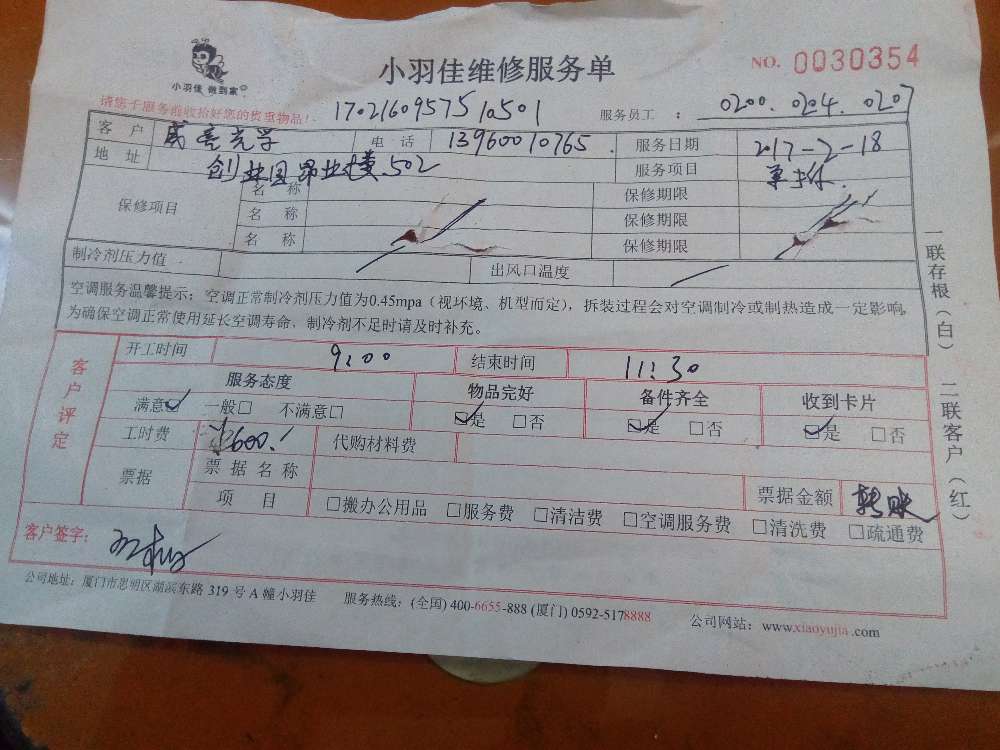 小羽佳 做到家
小羽佳维修服务单
NO. 0030354
请您于服务前收拾好您的贵重物品!
17021609575 10501
服务员工 : 0200. 0204. 0207
客 户 威亮光学 电 话 13960010765. 服务日期 2017-2-18
地 址 创业园昂业楼502 服务项目
保修项目
名 称 保修期限
名 称 保修期限
名 称 保修期限
制冷剂压力值 出风口温度
空调服务温馨提示: 空调正常制冷剂压力值为0.45mpa (视环境、机型而定), 拆装过程会对空调制冷或制热造成一定影响,
为确保空调正常使用延长空调寿命, 制冷剂不足时请及时补充。
客户评定
开工时间 9:00 结束时间 11:30
服务态度 物品完好 备件齐全 收到卡片
满意☑ 一般□ 不满意□ ☑是 □否 ☑是 □否 ☑是 □否
工时费 ¥600. 代购材料费
票据 票 据 名 称 票据金额 转账
项 目 □搬办公用品 □服务费 □清洁费 □空调服务费 □清洗费 □疏通费
客户签字:
公司地址: 厦门市思明区湖滨东路 319 号 A 幢小羽佳 服务热线: (全国) 400-6655-888 (厦门) 0592-5178888 公司网站: www.xiaoyujia.com
一联存根(白) 二联客户(红)